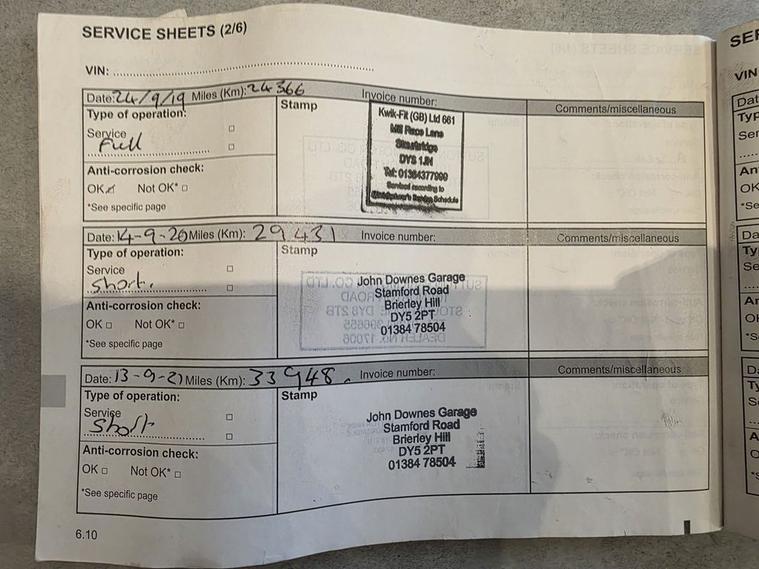 SERVICE SHEETS (2/6)
VIN:
Date: 24/9/19 Miles (Km): 24 366 Invoice number:
Type of operation:
Stamp
Comments/miscellaneous
Service
Full
Kwik-Fit (GB) Ltd 661
Mill Race Lane
Stourbridge
DY8 1JN
Tel: 01384377999
Serviced according to
Service Schedule
Anti-corrosion check:
OK Not OK*
*See specific page
Date: 14-9-20 Miles (Km): 29431 Invoice number:
Comments/miscellaneous
Type of operation:
Stamp
Service
Short.
John Downes Garage
Stamford Road
Brierley Hill
DY5 2PT
01384 78504
Anti-corrosion check:
OK Not OK*
*See specific page
Date: 13-9-21 Miles (Km): 33948. Invoice number:
Comments/miscellaneous
Type of operation:
Stamp
Service
Short
John Downes Garage
Stamford Road
Brierley Hill
DY5 2PT
01384 78504
Anti-corrosion check:
OK Not OK*
*See specific page
6.10
VIN